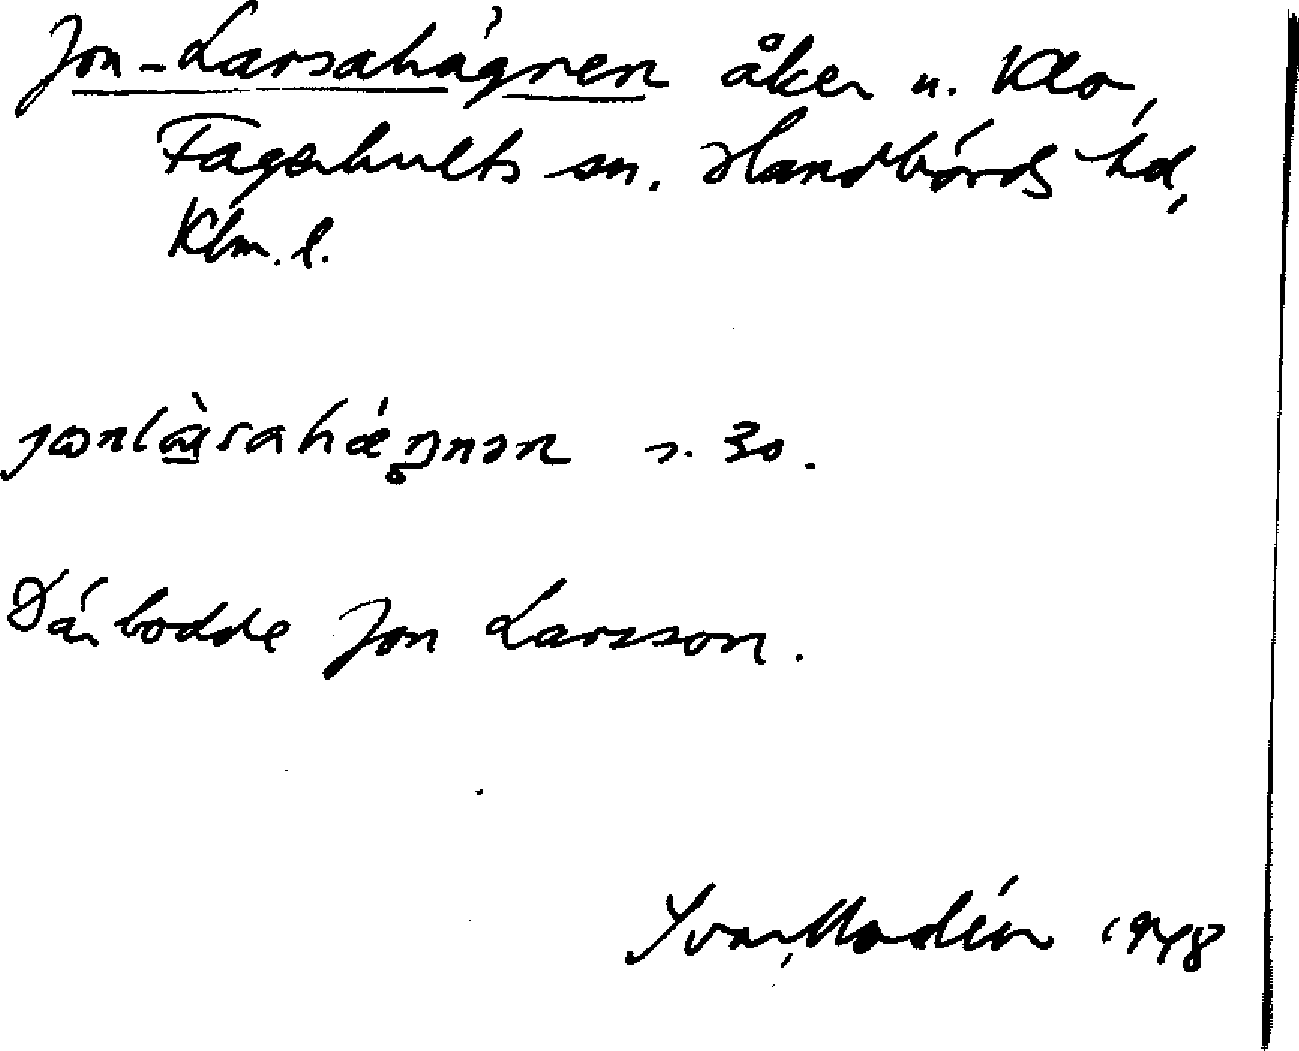 Jon-Larsahägnen åker u. Klo,
Fagerhults sn. Handbörds hd,
Klm. l.
s. 30.
Där bodde Jon Larsson.
Yvar Modéer 1948